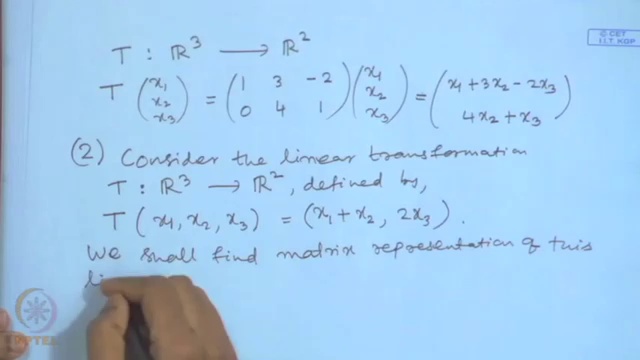 © CET
I.I.T. KGP
T : ℝ³ ⟶ ℝ²
T (x₁ x₂ x₃) = (1 3 -2 0 4 1) (x₁ x₂ x₃) = (x₁ + 3x₂ - 2x₃ 4x₂ + x₃)
(2) Consider the linear transformation
T : ℝ³ ⟶ ℝ², defined by,
T (x₁, x₂, x₃) = (x₁ + x₂, 2x₃).
We shall find matrix representation of this
li